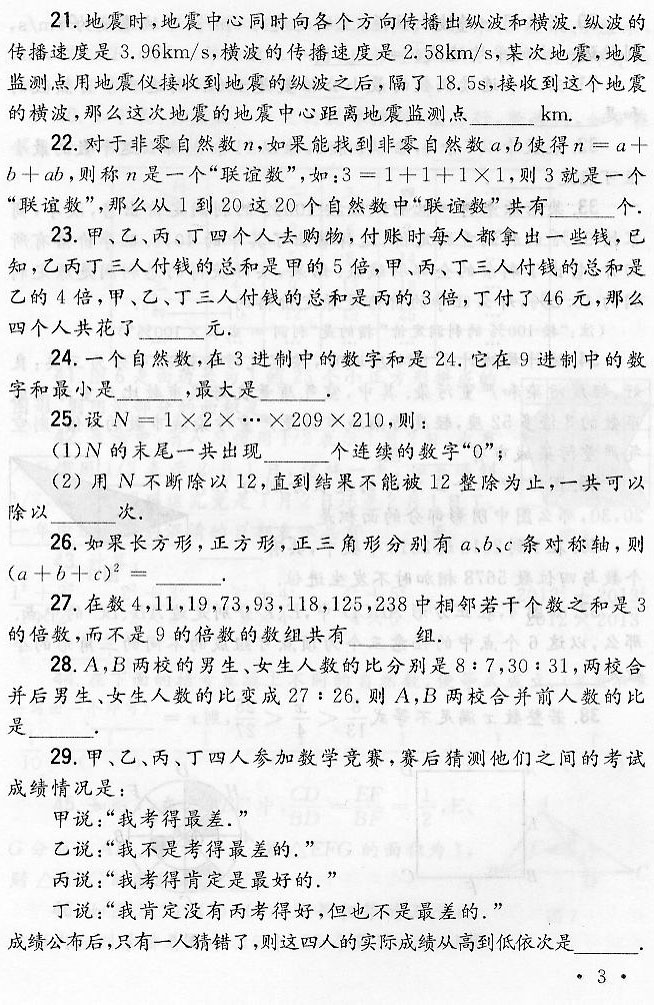 21. 地震时,地震中心同时向各个方向传播出纵波和横波.纵波的
传播速度是 3.96km/s,横波的传播速度是 2.58km/s,某次地震,地震
监测点用地震仪接收到地震的纵波之后,隔了 18.5s,接收到这个地震
的横波,那么这次地震的地震中心距离地震监测点______km.
22. 对于非零自然数 n,如果能找到非零自然数 a,b 使得 n = a +
b + ab,则称 n 是一个“联谊数”,如:3 = 1 + 1 + 1 × 1,则 3 就是一个
“联谊数”,那么从 1 到 20 这 20 个自然数中“联谊数”共有______个.
23. 甲、乙、丙、丁四个人去购物,付账时每人都拿出一些钱,已
知,乙丙丁三人付钱的总和是甲的 5 倍,甲、丙、丁三人付钱的总和是
乙的 4 倍,甲、乙、丁三人付钱的总和是丙的 3 倍,丁付了 46 元,那么
四个人共花了______元.
24. 一个自然数,在 3 进制中的数字和是 24. 它在 9 进制中的数
字和最小是______,最大是______.
25. 设 N = 1 × 2 × … × 209 × 210,则:
(1)N 的末尾一共出现______个连续的数字“0”;
(2) 用 N 不断除以 12,直到结果不能被 12 整除为止,一共可以
除以______次.
26. 如果长方形,正方形,正三角形分别有 a、b、c 条对称轴,则
(a + b + c)² = ______.
27. 在数 4,11,19,73,93,118,125,238 中相邻若干个数之和是 3
的倍数,而不是 9 的倍数的数组共有______组.
28. A,B 两校的男生、女生人数的比分别是 8 : 7,30 : 31,两校合
并后男生、女生人数的比变成 27 : 26, 则 A,B 两校合并前人数的比
是______.
29. 甲、乙、丙、丁四人参加数学竞赛,赛后猜测他们之间的考试
成绩情况是:
甲说:“我考得最差.”
乙说:“我不是考得最差的.”
丙说:“我考得肯定是最好的.”
丁说:“我肯定没有丙考得好,但也不是最差的.”
成绩公布后,只有一人猜错了,则这四人的实际成绩从高到低依次是______.
• 3 •